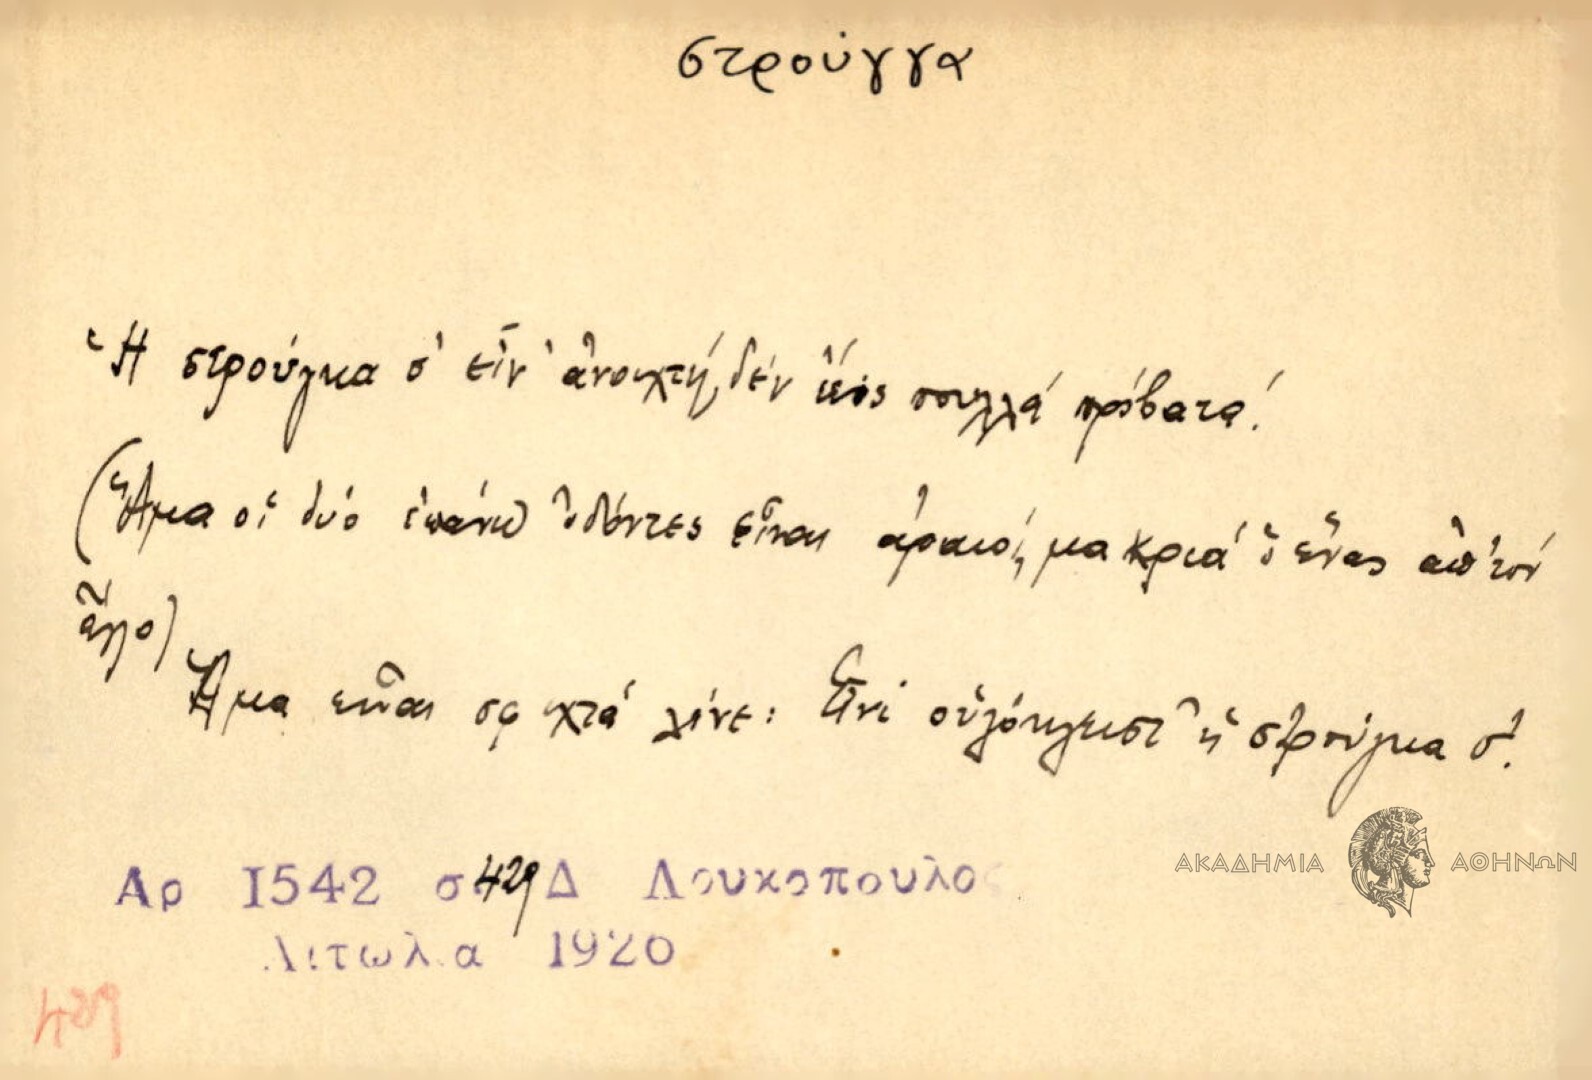 στρούγγα
Ἡ στρούγκα σ' εἶν' ἀνοιχτή, δέν πουλλά πρόβατα!
(Ἅμα οἱ δυό ἐπάνω ὀδόντες εἶναι ἀραιοί, μακριά ὁ ἕνας ἀπ' τόν
ἄλλο)
Ἅμα εἶναι σφιχτά λένε: Εἶνι οὑλόκλειστ' ἡ στρούγκα σ'.
Αρ 1542 σ 429 Δ Λουκοπουλος
Αιτωλια 1920
429
ΑΚΑΔΗΜΙΑ ΑΘΗΝΩΝ